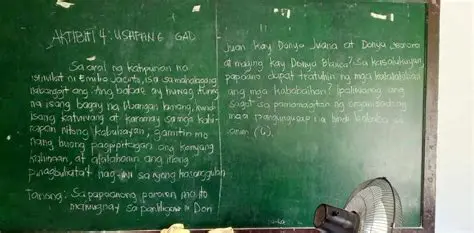 AKTIBITI 4: USAPANG GAD
Sa aral ng katipunan na
isinulat ni Emilio Jacinto, isa sa mahahalagang
nabanggit ang "Ang babae ay huwag mong
isang bagay na libangan lamang, kundi
isang katuwang at karamay sa mga kahi-
rapan nitong kabuhayan, gamitin mo
nang buong pagpipitagan ang kanyang
kahinaan, at alalahanin ang inang
pinagbuhata't nag sa iyong kasanggulan
Tanong: Sa papaanong paraan ito
maiuugnay sa Don
Juan kay Donya Juana at Donya Leonora
at maging kay Donya Blanca? Sa kasalukuyan,
papaano dapat tratuhin ng mga kalalakihan
ang mga kababaihan? Ipaliwanag ang
sagot sa pamamagitan ng
mga pangungusap na hindi bababa sa
anim (6).